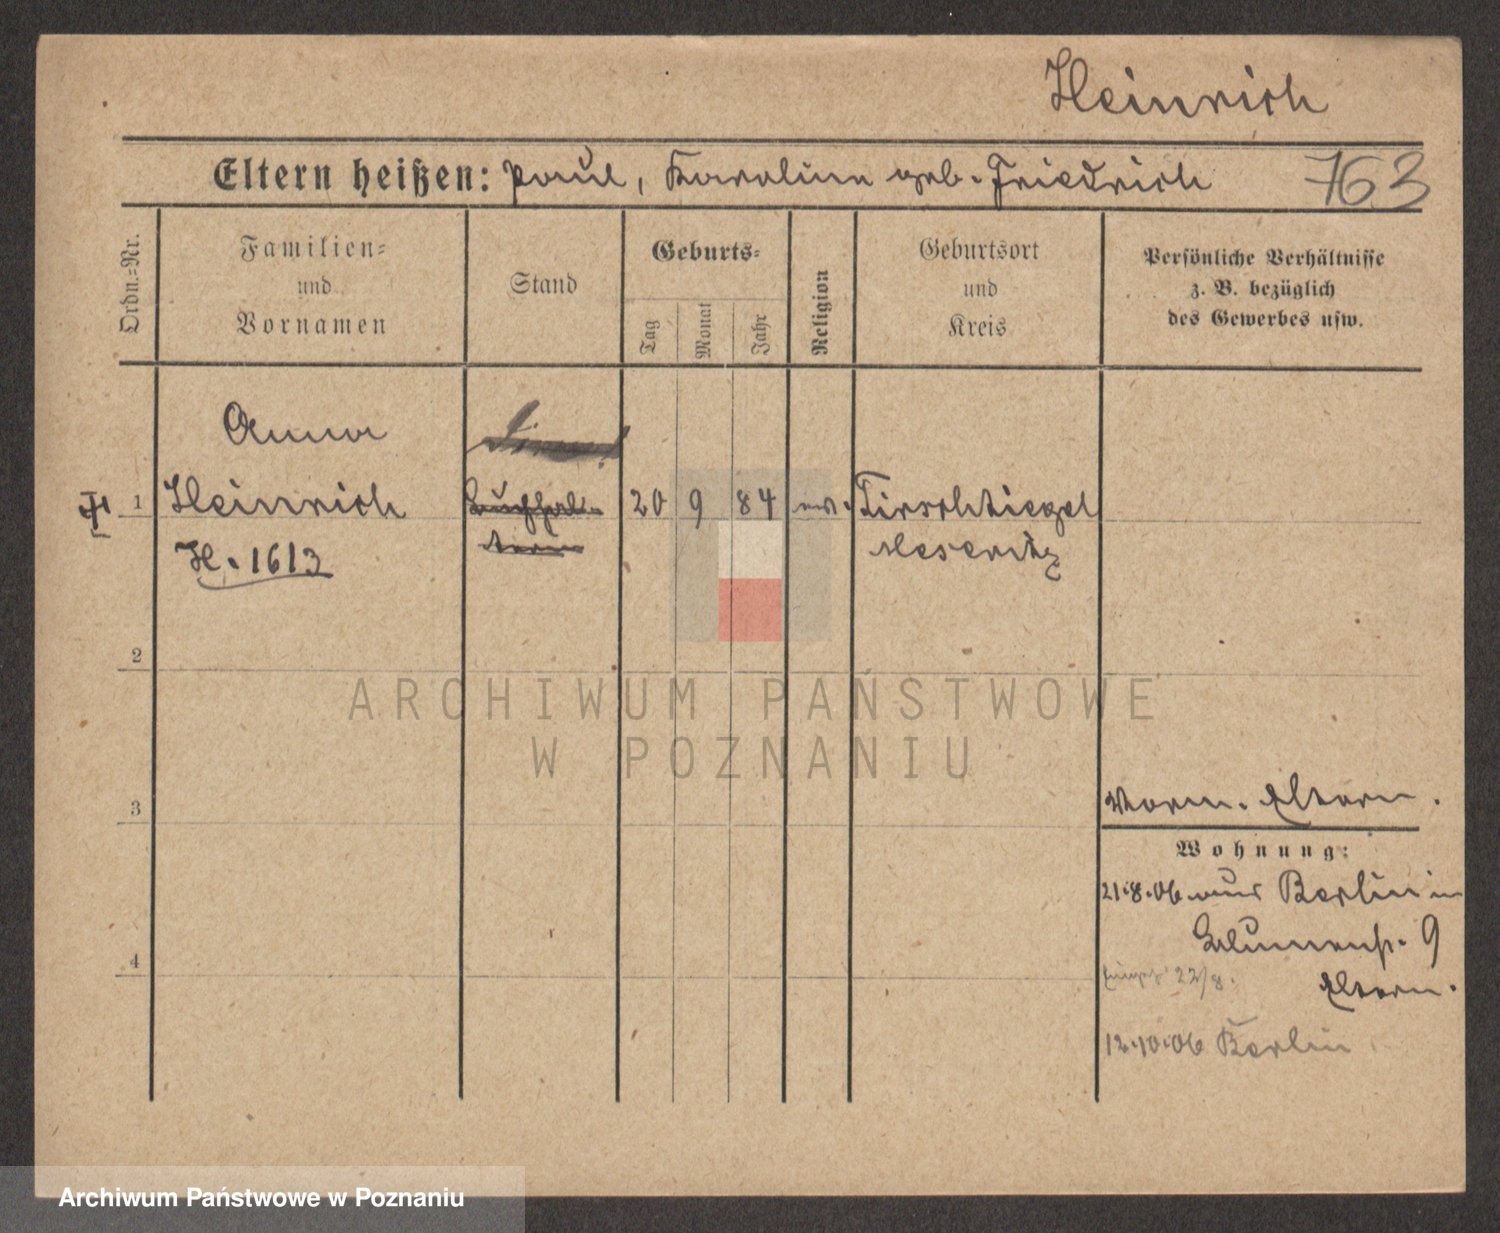 Heinrich
Eltern heißen: Paul, Karoline geb. Friedrich 763
Ordn.=Nr.
Familien=
und
Vornamen
Stand
Geburts=
Tag
Monat
Jahr
Religion
Geburtsort
und
Kreis
Persönliche Verhältnisse
z. B. bezüglich
des Gewerbes usw.
Anna
1 Heinrich Buchhal- 20 9 84 ev. Tirschtiegel
H. 1613 terin Meseritz
2
ARCHIWUM PAŃSTWOWE
W POZNANIU
3
Eltern.
Wohnung:
21.8.06 aus Berlin in
Blumenstr. 9
4
22/8. Eltern.
12.10.06 Berlin
Archiwum Państwowe w Poznaniu